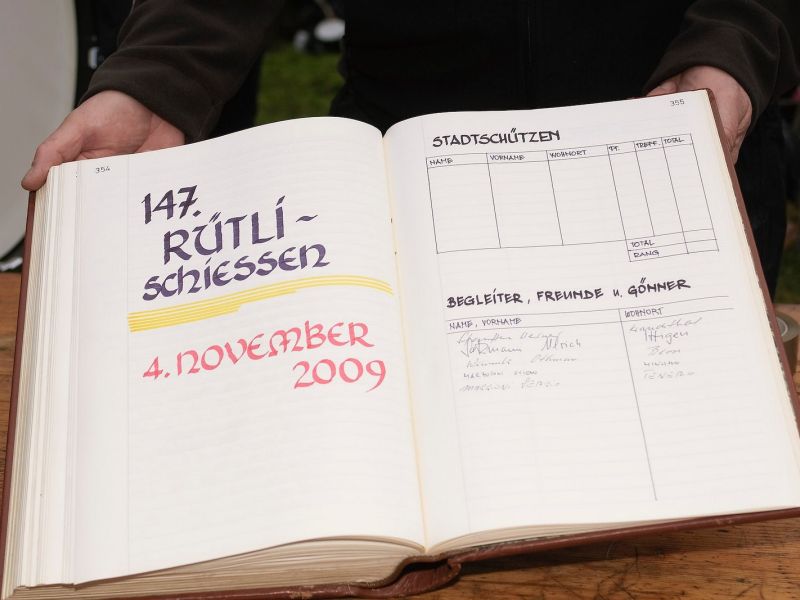 354
147.
RÜTLI~
SCHIESSEN
4. NOVEMBER
2009
355
STADTSCHÜTZEN
NAME VORNAME WOHNORT PT. TREFF. TOTAL
TOTAL
RANG
BEGLEITER, FREUNDE u. GÖNNER
NAME, VORNAME WOHNORT
Ulrich
Bern